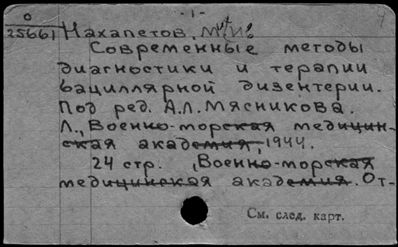 - 1 -
0
25661 Нахапетов, М.И.
Современные методы
диагностики и терапии
бациллярной дизентерии.
Под ред. А.Л. Мясникова.
Л., Военно-морская медицин-
ская академия, 1944.
24 стр. (Военно-морская
медицинская академия. От-
См. след. карт.